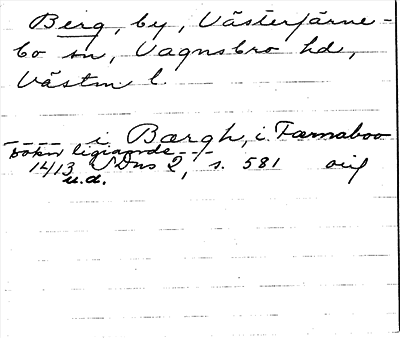 Berg, by, Västerfärne-
bo sn, Vagnsbro hd,
Västm l.
---- i Bærgh, i Færnaboo
sokn ligiande ----
1413 SDns 2, s. 581 orig
u.d.